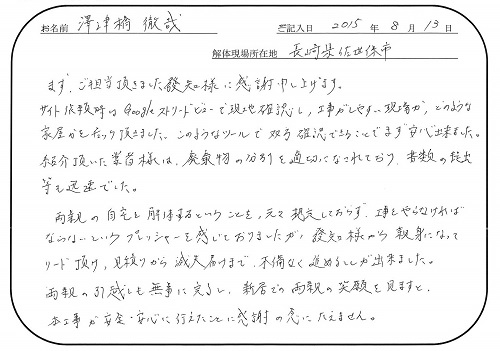 お名前 澤津橋 徹哉 ご記入日 2015 年 8 月 13 日
解体現場所在地 長崎県佐世保市
まず、ご担当頂きました發知様に感謝申し上げます。
サイト依頼時はGoogleストリートビューで現地確認し、工事がしやすい現場か、どのような
家屋かチェック頂きました。このようなツールで双方確認できることでまず安心出来ました。
ご紹介頂いた業者様は、廃棄物の分別を適切になされており、書類の提出
等も迅速でした。
両親の自宅を解体するということを、元々想定しておらず、工事をやらなければ
ならないというプレッシャーを感じておりましたが、發知様から親身になって
リード頂け、見積りから滅失届けまで、不備なく進めることが出来ました。
両親の引越しも無事に完了し、新居での両親の笑顔を見ますと、
本工事が安全・安心に行えたことに感謝の念にたえません。